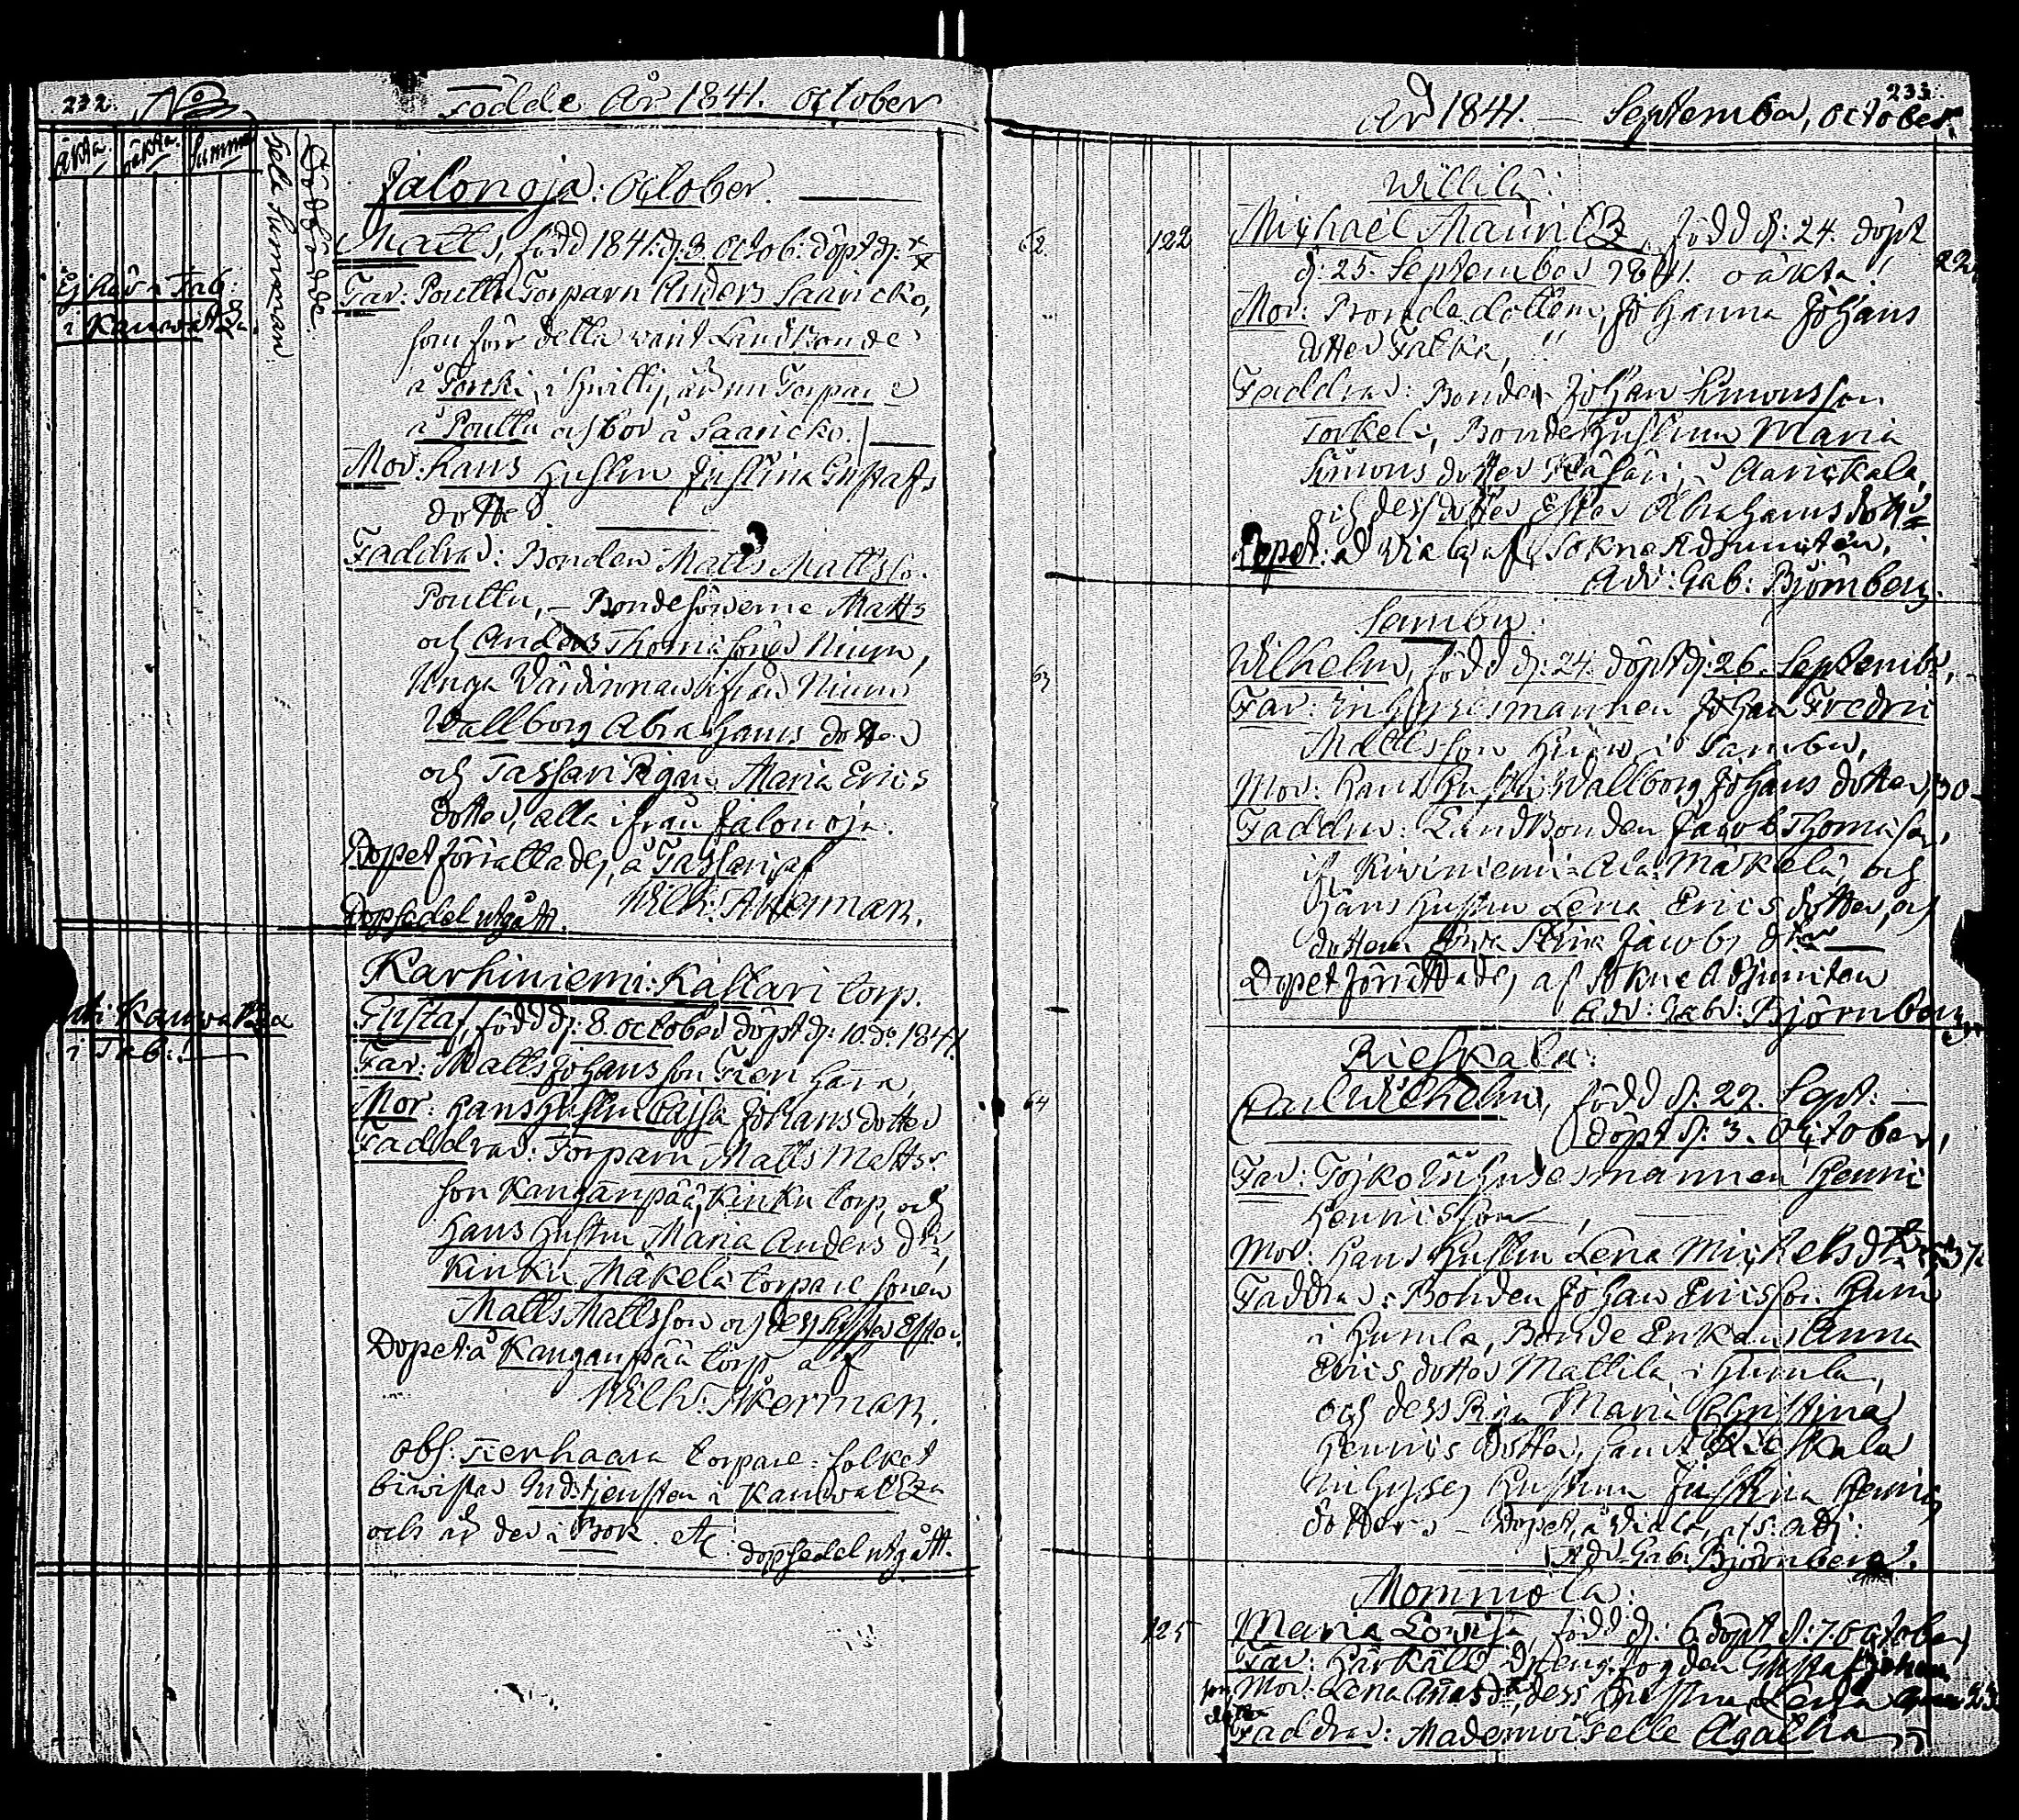 232. No Födde År 1841. October
Äkta. oäkta. Summa
hela Summan
Dödfödde
Jalonoja: October.
Matts, född 1841. d: 3. Octob: döpt d:
Ej här i Tab:
i Kauvatza.
Far: Pouttu Torparn Anders Saaricko,
som för detta varit Landbonde
å Torski, i Huitty, är nu Torpare
å Pouttu och bor å Saaricko.
Mor: hans Hustru Justina Gustafs
dotter.
Faddrar: Bonden Matts Mattsso.
Pouttu, - Bondesönerne Matts
och Anders Thomæ söner Nium,
Unga Värdinnan ifrån Nium
Wallborg Abrahams dotter
och Tassari Pigan Maria Erics
dotter, alla ifrån Jalonoja.
Dopet förrättades, å Tassari af
Wilh: Åkerman.
Dopsedel utgått.
Karhiniemi: Kastari torp.
Gustaf, född d: 8. October döpt d: 10. do 1841.
uti Kauvatza
i Tab:
Far: Matts Johansson Tien haara,
Mor: Hans Hustru Cajsa Johansdotter
Faddrar: Torparn Matts Matts-
son Kanganpää, Kinku torp, och
Hans Hustru Maria Anders dr,
Kinku Mäkelä torpare sonen
Matts Mattsson och dess syster Ester.
Dopet å Kanganpää torp af
Wilh: Åkerman.
Obs: Tienhaara torpare-folket
bivistar Gudstjensten i Kauvatza
och är der i Bok. etc dopsedel utgått.
233.
År 1841. — September, October.
Willilä:
62. 122 Michaël Mauritz, född d: 24. döpt
d: 25. September 1841. oäkta! 22
Mor: Bondedottern, Johanna Johans
dotter
Faddrar: Bonden Johan Simonsson
Torkeli, Bondehustrun Maria
Simons dotter i Aarickala,
och dess dotter Ester Abrahams dotter
Dopet: af SokneAdjuncten,
Adv: Gab: Björnberg.
Sambu:
63 Wilhelm, född d: 24. döpt d: 26. Septembr,
Far: Inhysesmannen Johan Fredric
Mattsson i Sambu,
Mor: Hans Hustru Wallborg Johans dotter, 30
Faddrar: Landbonden Jacob Thomæson,
ifr. Kiviniemi Ala Mäkelä, och
Hans Hustru Lena Erics dotter, och
dottern Stina Jacobs dtr
Dopet förrättades af SokneAdjuncten
Adv: Gabr: Björnberg
Rieskala:
64 Carl Wilhelm, född d: 29. Sept:
döpt d: 3. October,
Far: Inhysesmannen Henric
Henricsson,
Mor: Hans Hustru Lena Mickelsdtr, 37
Faddrar: Bonden Johan Ericsson
i Humla, Bonde Enkan Anna
Erics dotter Mattila i Humla,
och dess Piga Maria Christina
Henrics dotter, samt Rieskala
Inhyses Hustrun Justina Henrics
dotter.
Adv. Gab: Björnberg.
Mommola:
125 Maria Lovisa, född d: 6. döpt d: 7. October,
Far: Härkälä Drengfogden Gustaf Johan
son Mor: Lena dess Hustru 23
Faddrar: Mademoiselle Agatha